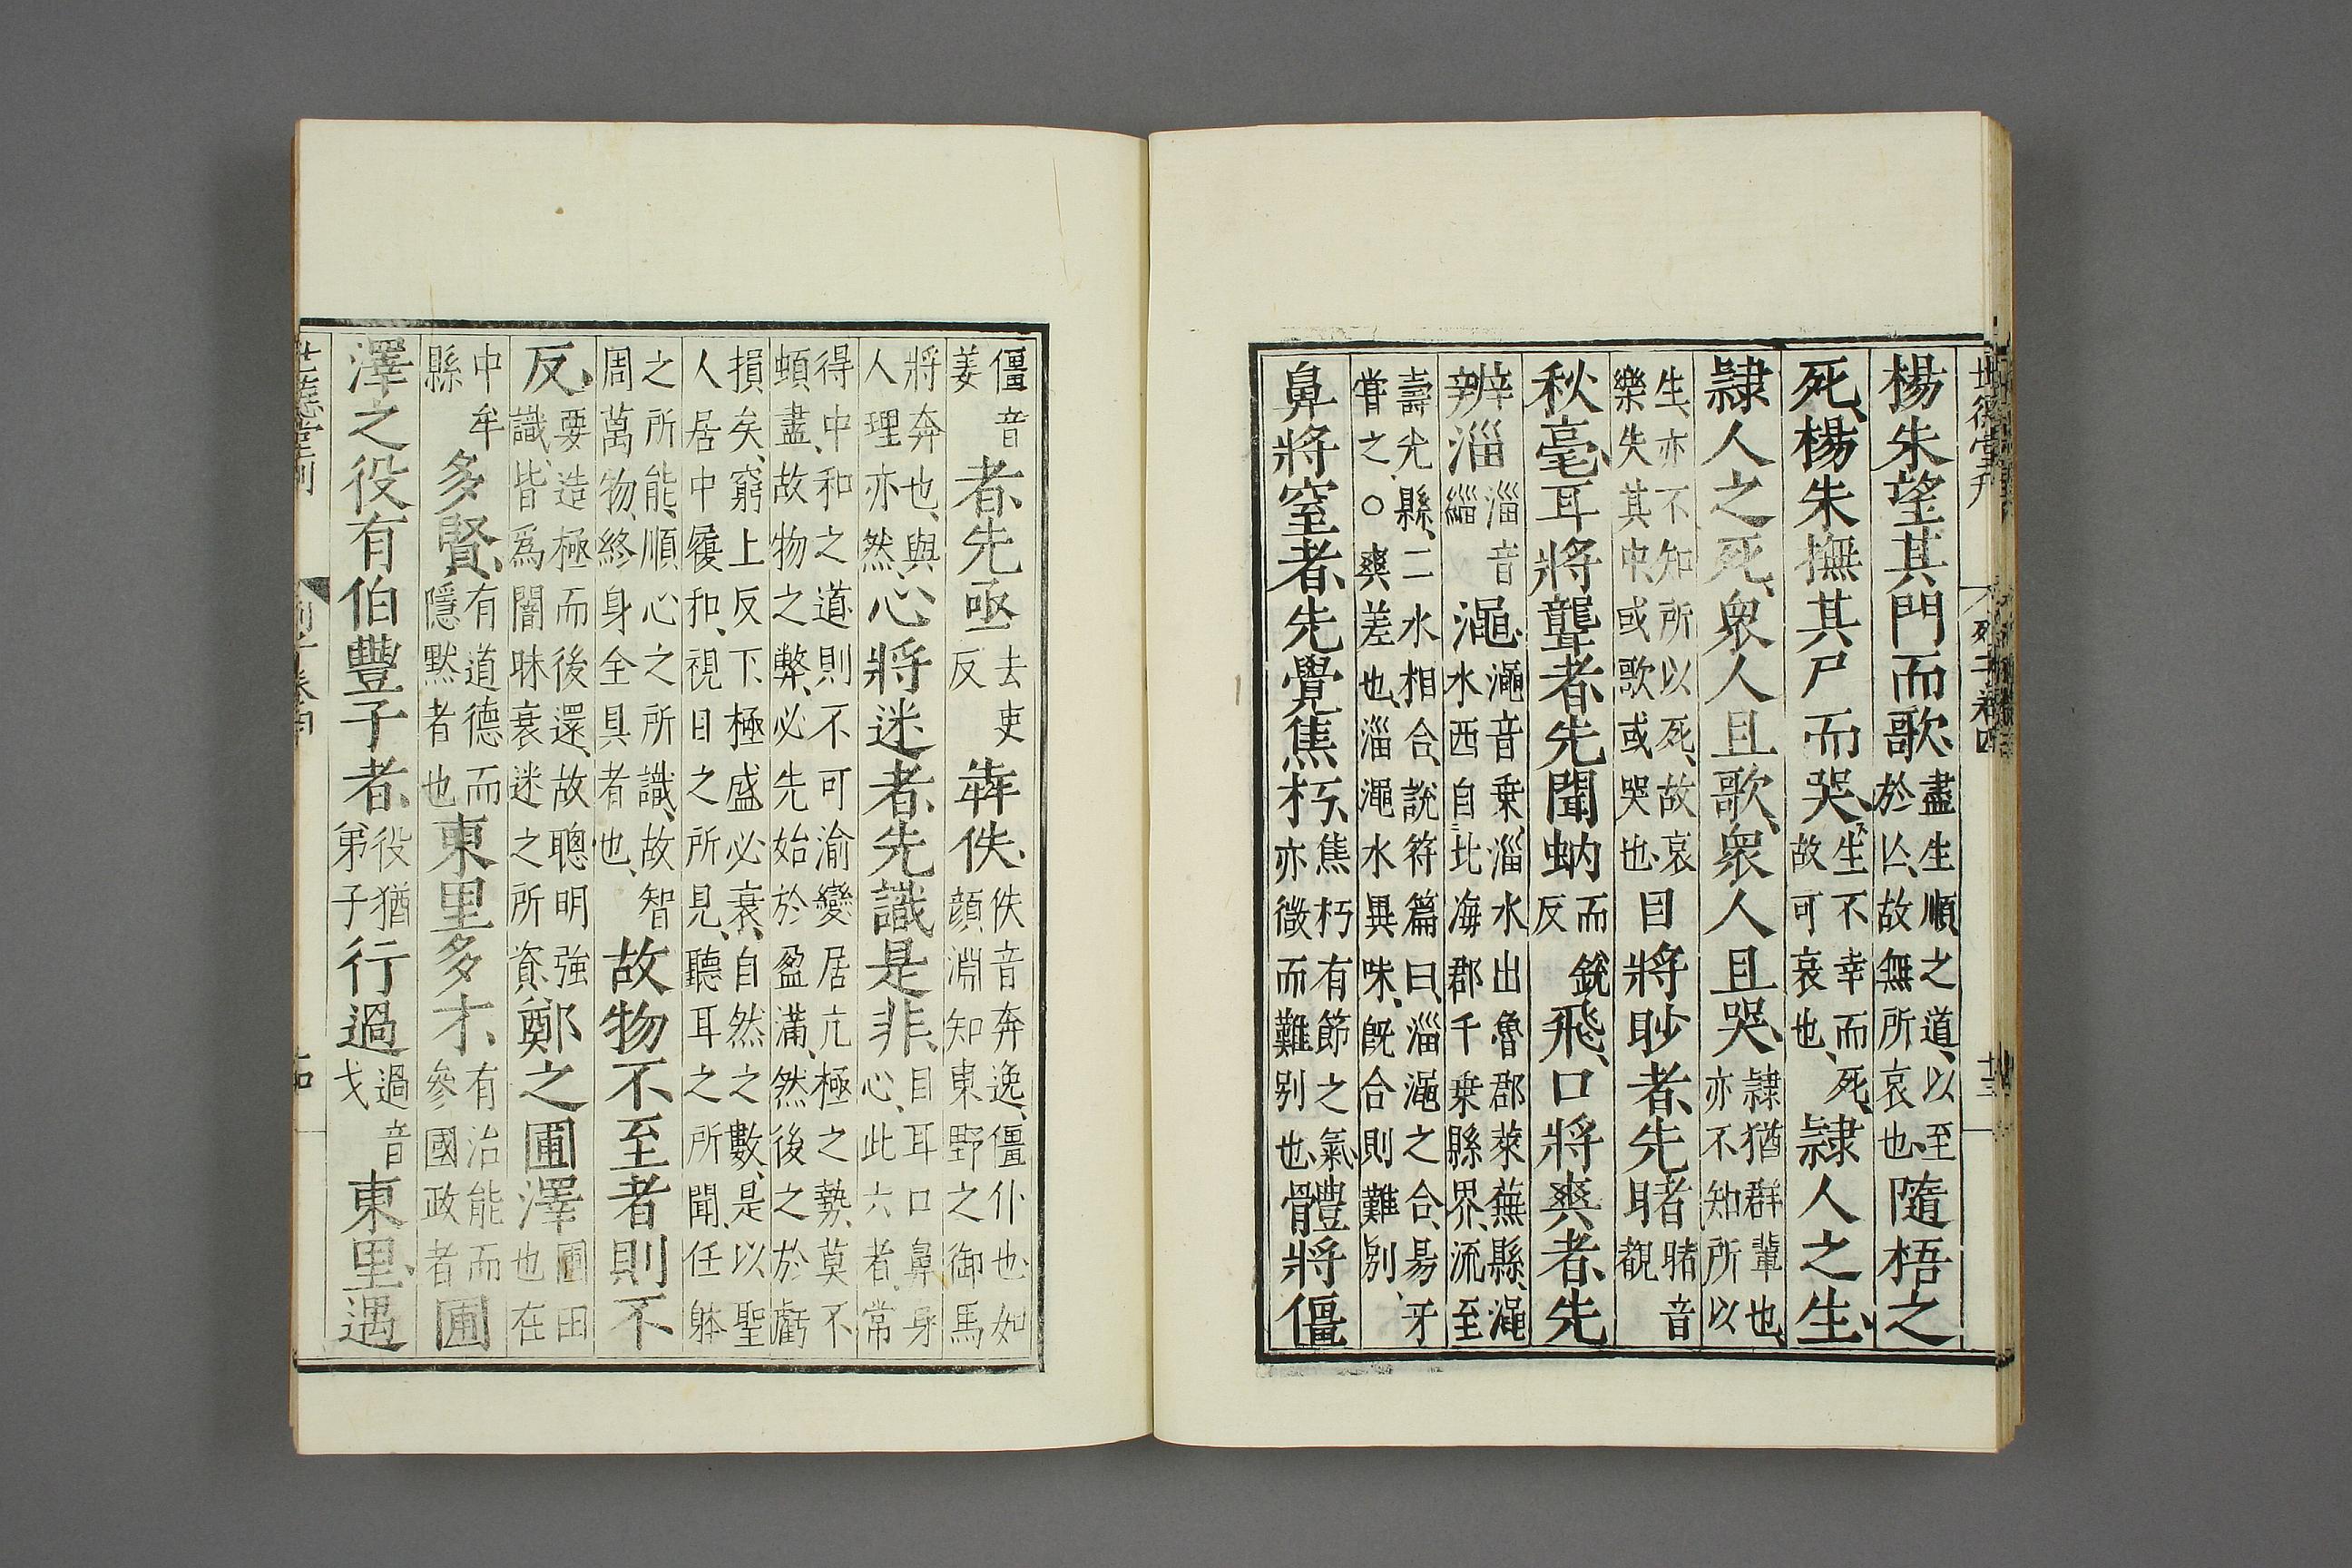 世德堂刊 列子卷四 十三
楊朱望其門而歌、盡生順之道、以至於亾、故無所哀也、隨梧之
死、楊朱撫其尸而哭、生不幸而死、故可哀也、隸人之生、
隸人之死、衆人且歌、衆人且哭、隸猶群輩也、亦不知所以
生、亦不知所以死、故哀樂失其中、或歌或哭也、目將眇者、先睹睹音覩
秋毫、耳將聾者、先聞蚋而銳反飛、口將爽者、先
辨淄淄音緇澠、澠音乗、淄水出魯郡萊蕪縣、澠水西自北海郡千乗縣界、流至
壽光縣、二水相合、說符篇曰、淄澠之合、易牙嘗之、○爽差也、淄澠水異味、旣合則難別、
鼻將窒者、先覺焦朽、焦朽有節之氣、亦微而難別也、體將僵
僵音姜者、先亟去吏反犇佚、佚音奔逸、僵仆也、如顔淵知東野之御馬
將奔也、與人理亦然、心將迷者、先識是非、目耳口鼻身心、此六者、常
得中和之道、則不可渝變居亢極之勢、莫不頓盡、故物之弊、必先始於盈滿、然後之於虧
損矣、窮上反下、極盛必衰、自然之數、是以聖人居中履和、視目之所見、聽耳之所聞、任躰
之所能、順心之所識、故智周萬物、終身全具者也、故物不至者則不
反、要造極而後還、故聰明強識、皆爲闇昧衰迷之所資、鄭之圃澤圃田也在
中牟縣多賢、有道德而隱默者也東里多才、有治能而參國政者圃
澤之役有伯豐子者、役猶弟子行過過音戈東里、遇
世德堂刊